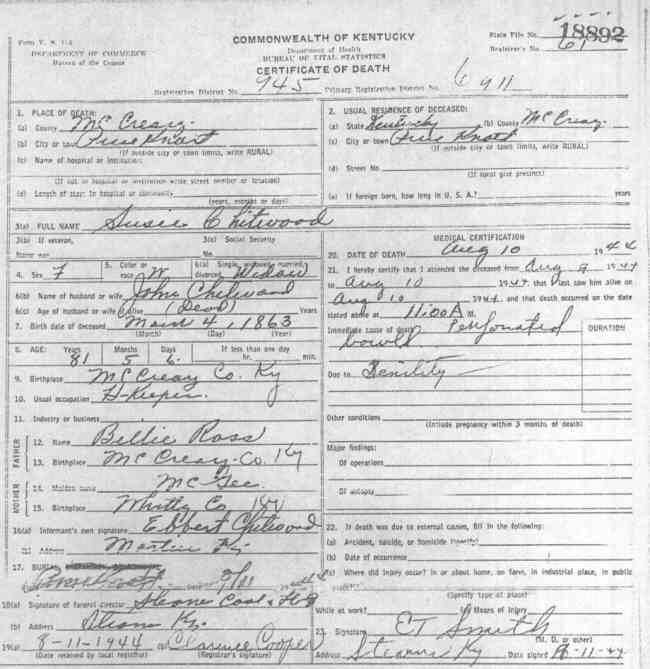 Form V. S. 1-A
DEPARTMENT OF COMMERCE
Bureau of the Census
COMMONWEALTH OF KENTUCKY
Department of Health
BUREAU OF VITAL STATISTICS
CERTIFICATE OF DEATH
State File No. 18892
Registrar's No. 61
Registration District No. 945 Primary Registration District No. 6911
1. PLACE OF DEATH:
(a) County McCreary
(b) City or town Pine Knot
(If outside city or town limits, write RURAL)
(c) Name of hospital or institution:
(If not in hospital or institution write street number or location)
(d) Length of stay: In hospital or community
(years, months or days)
2. USUAL RESIDENCE OF DECEASED:
(a) State Kentucky (b) County McCreary
(c) City or town Pine Knot
(If outside city or town limits, write RURAL)
(d) Street No.
(If rural give precinct)
(e) If foreign born, how long in U. S. A.? years
3(a) FULL NAME Susie Chitwood
3(b) If veteran,
Name war
3(c) Social Security
No.
4. Sex F 5. Color or race W 6(a) Single, widowed, married, divorced Widow
6(b) Name of husband or wife John Chitwood
6(c) Age of husband or wife if alive (Dead) Years
7. Birth date of deceased March 4, 1863
(Month) (Day) (Year)
8. AGE: Years Months Days If less than one day
81 5 6 hr. min.
9. Birthplace McCreary Co. Ky
10. Usual occupation H-Keeper.
11. Industry or business
FATHER
12. Name Billie Ross
13. Birthplace McCreary Co. Ky
MOTHER
14. Maiden name McGee
15. Birthplace Whitly Co Ky
16(a) Informant's own signature Elbert Chitwood
(b) Address Ky.
17. BURIAL
8/11 1944
18(a) Signature of funeral director Stearns Coal &
(b) Address Stearns Ky.
19(a) 8-11-1944 (b) Clarence Cooper
(Date received by local registrar) (Registrar's signature)
MEDICAL CERTIFICATION
20. DATE OF DEATH Aug 10 1944
21. I hereby certify that I attended the deceased from Aug 9 1944
to Aug 10 1944 that I last saw him alive on
Aug 10 1944 and that death occurred on the date
stated above at 11:00 A M.
Immediate cause of death Perforated
bowels
DURATION
Due to Senility
Other conditions
(Include pregnancy within 3 months of death)
Major findings:
Of operations
Of autopsy
22. If death was due to external causes, fill in the following:
(a) Accident, suicide, or homicide (specify)
(b) Date of occurrence
(c) Where did injury occur? In or about home, on farm, in industrial place, in public
(Specify type of place)
While at work? (e) Means of injury
23. Signature E T Smith
(M. D. or other)
Address Stearns Ky Date signed 8-11-44